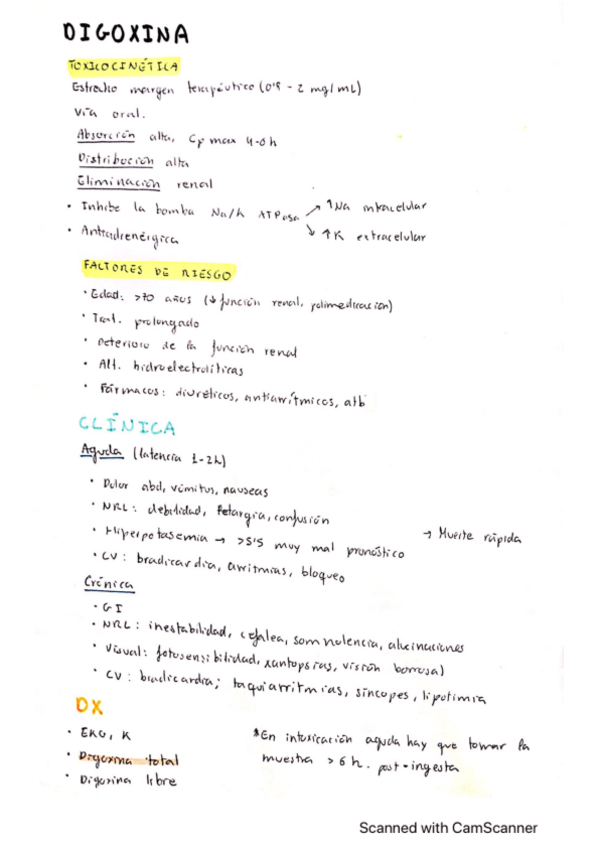 DIGOXINA
TOXICOCINÉTICA
Estrecho margen terapéutico (0'5 - 2 mg/mL)
Vía oral.
Absorción alta, Cp max 4-6 h
Distribución alta
Eliminación renal
• Inhibe la bomba Na/K ATPasa → ↑Na intracelular
↘ ↑K extracelular
• Antiadrenérgica
FACTORES DE RIESGO
• Edad: >70 años (↓ función renal, polimedicación)
• Trat. prolongado
• Deterioro de la función renal
• Alt. hidroelectrolíticas
• Fármacos: diuréticos, antiarrítmicos, atb
CLÍNICA
Aguda (latencia 1-2h)
• Dolor abd, vómitos, nauseas
• NRL: debilidad, letargia, confusión
• Hiperpotasemia → >5'5 muy mal pronóstico → Muerte rápida
• CV: bradicardia, arritmias, bloqueo
Crónica
• GI
• NRL: inestabilidad, cefalea, somnolencia, alucinaciones
• Visual: fotosensibilidad, xantopsias, visión borrosa)
• CV: bradicardia; taquiarritmias, síncopes, lipotimia
DX
• EKG, K
• Digoxina total
• Digoxina libre
*En intoxicación aguda hay que tomar la
muestra > 6 h. post-ingesta
Scanned with CamScanner